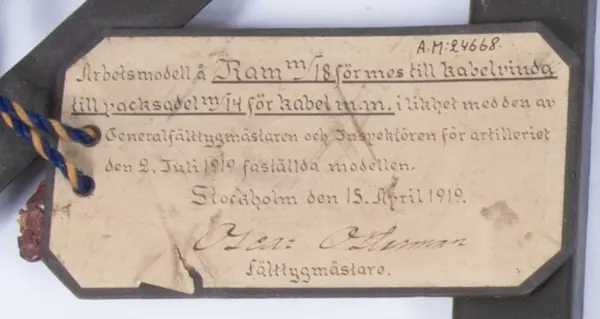 A.M: 24668.
Arbetsmodell å Ram m/18 förmes till kabelvinda
till packsadel m/14 för kabel m.m. i likhet med den av
Generalfälttygmästaren och Inspektören för artilleriet
den 2. Juli 1919 faställda modellen.
Stockholm den 15. April 1919.
Oscar Osterman
Fälttygmästare.